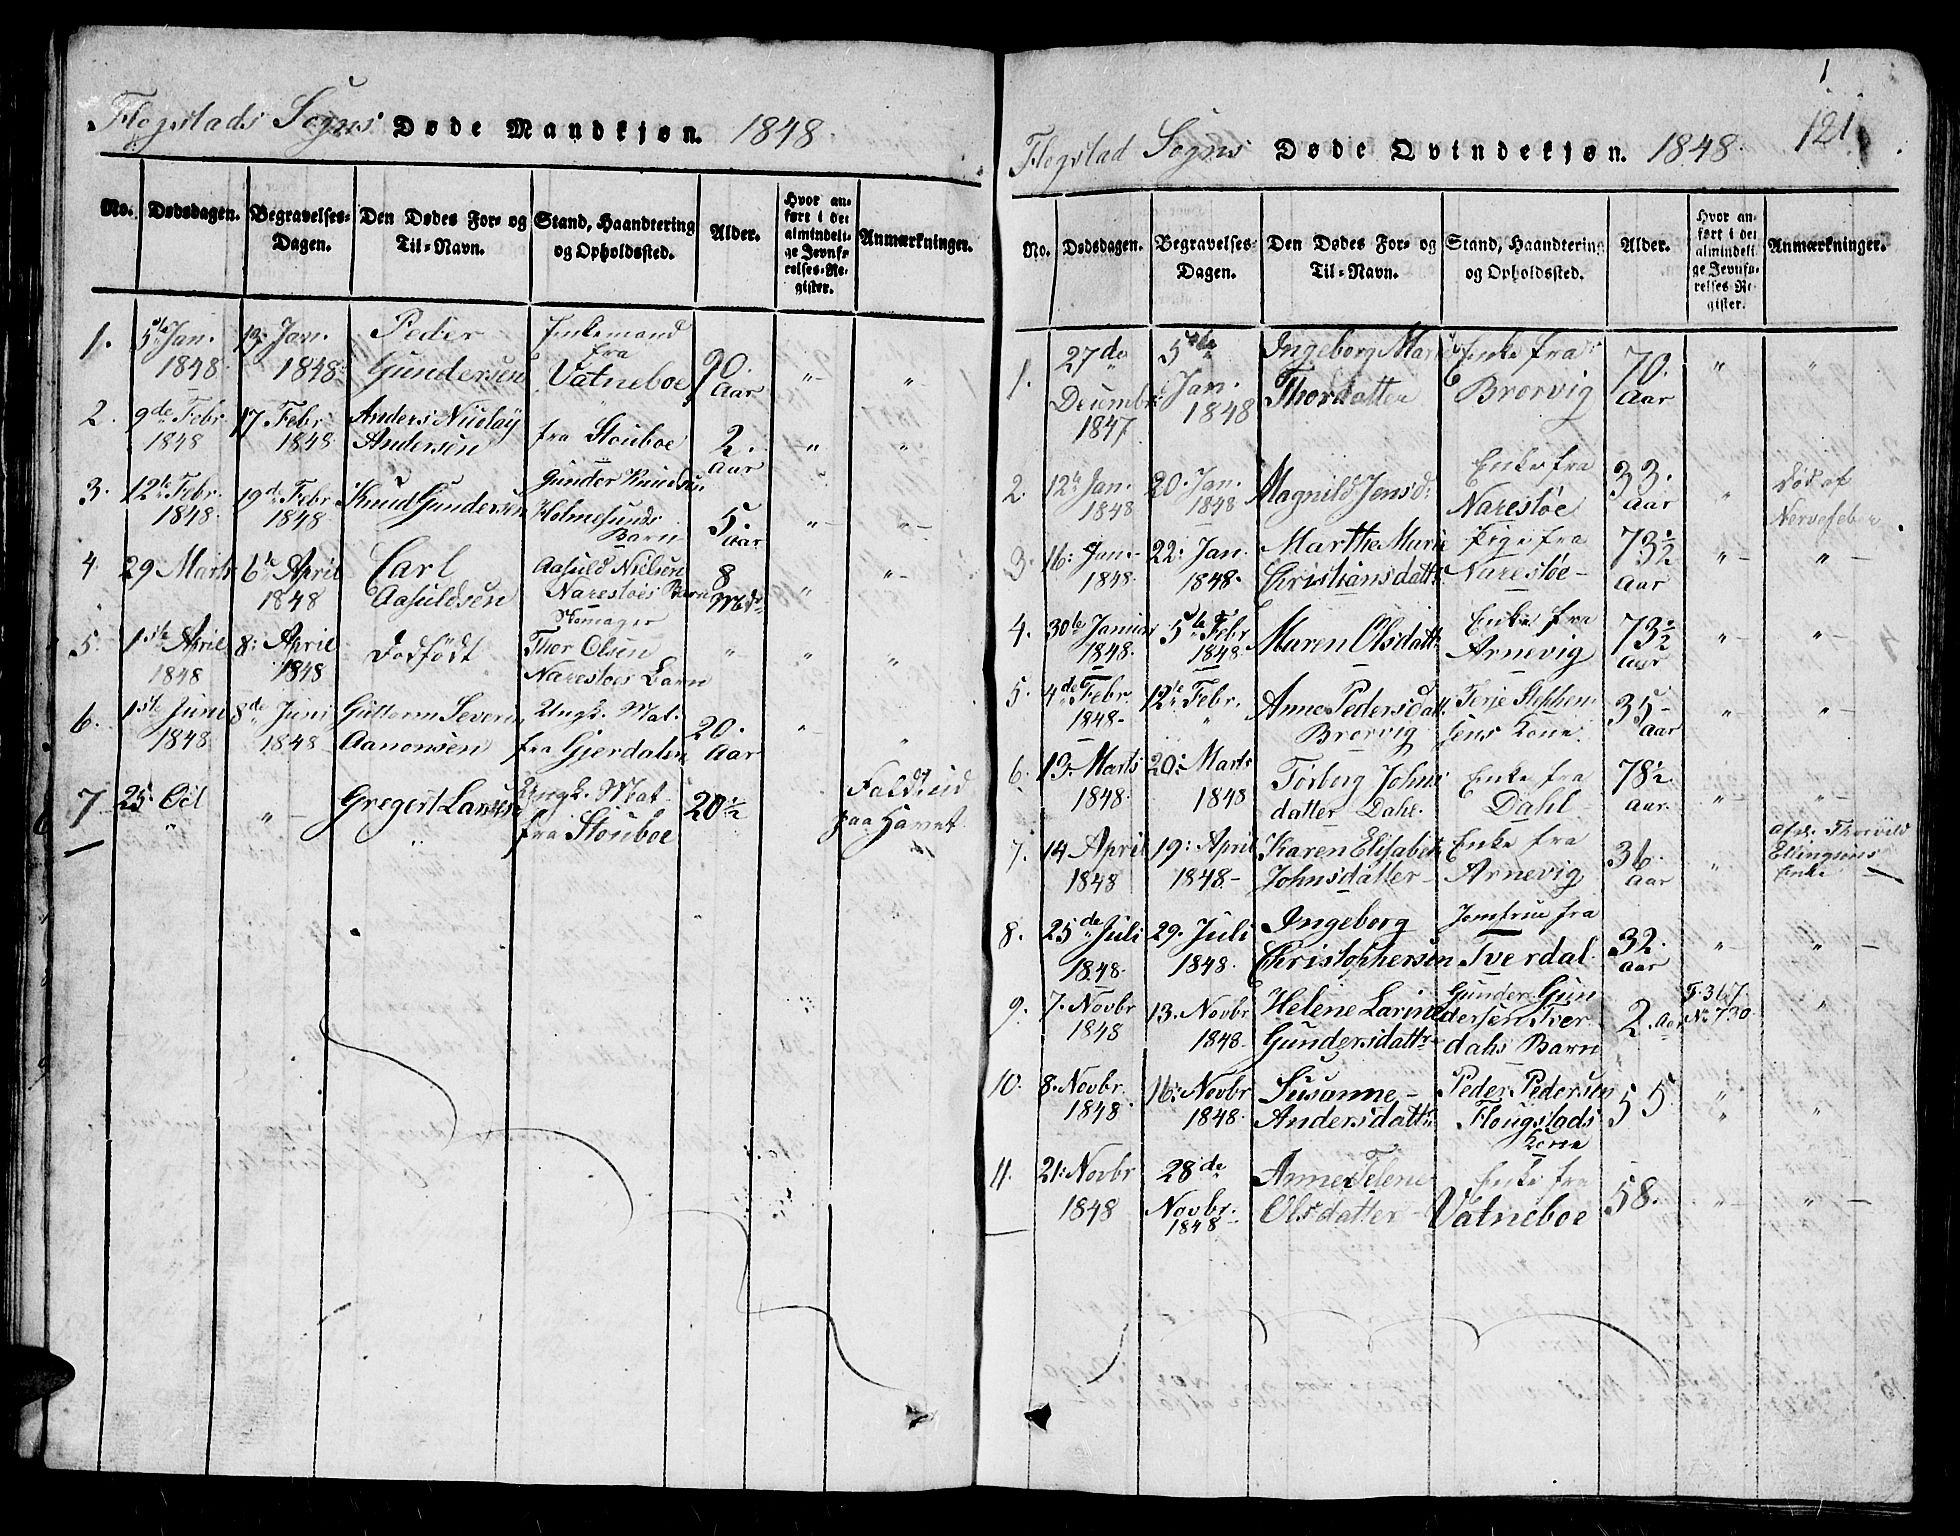 Flogstads Sogns Døde Mandkjøn. 1848.
No.
Dødsdagen.
Begravelses-
Dagen.
Den Dødes For- og
Til-Navn.
Stand, Haandtering
og Opholdssted.
Alder.
Hvor an-
ført i det
almindeli-
ge Jevnfø-
relses-Re-
gister.
Anmærkninger.
1. 5te Jan. 1848. 19. Jan. 1848 Peder Gundersen Enkemand fra Vatneboe 90. Aar " "
2. 9de Febr. 1848 17 Febr 1848 Anders Nicolay Andersen fra Stouboe 2. Aar " "
3. 12te Febr. 1848. 19de Febr 1848 Knud Gundersen Gunder Knudsen Holmesunds Barn 5. Aar " "
4. 29 Marts 6te April 1848 Carl Aasuldsen Aasuld Nielsen Narestoes Barn 8 Mdr " "
5. 1ste April 1848 8: April 1848 Dødfødt Skomager Thor Olsen Narestoes Barn " " "
6. 1ste Juni 1848 8de Juni 1848 Guttorm Severin Aanonsen Ungk. Mat. fra Gjerdalen 20. Aar " "
7 25. Oct " " Gregert Larsen " Ungk. Mat. fra Stouboe 20½ Faldt ud paa Havet
1
121
Flogstad Sogns Døde Qvindekjøn. 1848.
No.
Dødsdagen.
Begravelses-
Dagen.
Den Dødes For- og
Til-Navn.
Stand, Haandtering
og Opholdssted.
Alder.
Hvor an-
ført i det
almindeli-
ge Jevnfø-
relses-Re-
gister.
Anmærkninger.
1. 27de Decembr 1847. 5te Jan. 1848 Ingeborg Marie Thordatter Enke fra Brorvig 70. Aar " "
2. 12te Jan. 1848 20. Jan. 1848 Magnild Jensd: Enke fra Narestøe 33. Aar " Død af Nervefeber
3. 16: Jan. 1848. 22: Jan. 1848. Marthe Marie Christiansdatt: Pige fra Narestøe 73½ Aar " "
4. 30te Januar 1848. 5te Febr 1848 Maren Olsdatt: Enke fra Arnevig 73½ aar " "
5. 4de Febr. 1848 12te Febr. " Anne Pedersdatt. Brorvig Terje Stephensens Kone. 35 Aar " "
6. 13. Marts 1848. 20: Marts 1848 Torborg Johns datter Dahl. Enke fra Dahl 78½ Aar. " "
7. 14 April 1848 19: April 1848. Karen Elisabeth Johnsdatter Enke fra Arnevig 36. Aar " afd. Thorvild Ellingsens Enke
8. 25de Juli 1848. 29. Juli 1848. Ingeborg Christophersen Jomfrue fra Tverdal. 32. Aar " "
9. 7. Novbr 1848 13. Novbr 1848. Helene Larine Gundersdattr Gunder Gundersen Tverdahs Barn 2. Aar F. 367 No 730. "
10. 8. Novbr. 1848. 16: Novbr 1848. Susanne Andersdattr Peder Pedersen Flougstads Kone 55. " "
11. 21: Novbr 1848 28de Novbr. 1848 Anne Telene Olsdatter Enke fra Vatneboe 58. " "